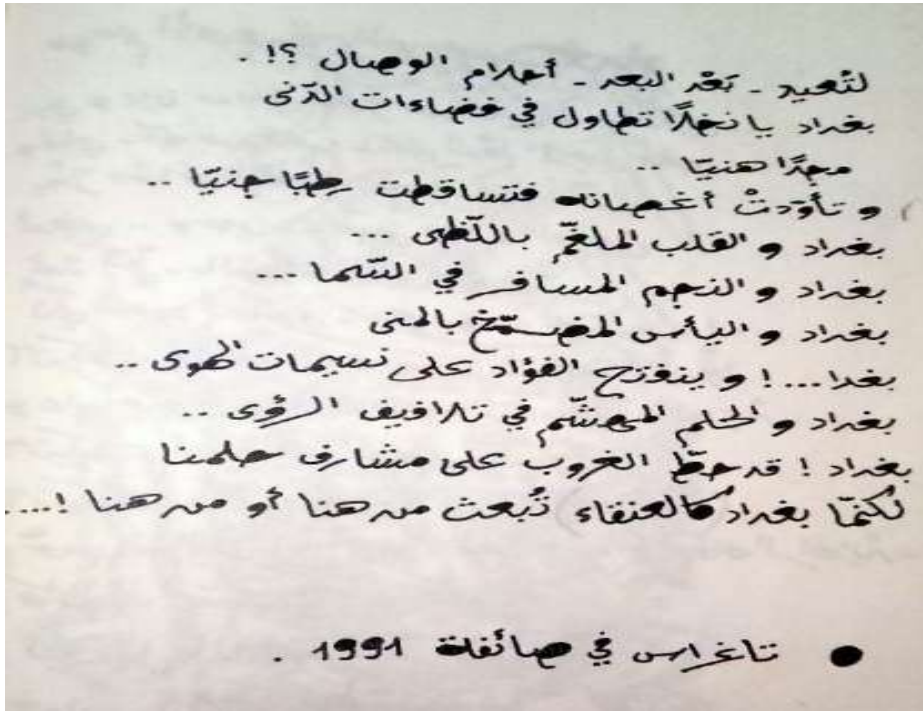 لتُعيد - بَعْد البعد - أحلام الوصال ؟! .
بغداد يا نخلًا تطاول في فضاءات الدّنى
مجدًا هنيّا ..
و تأوّدتْ أغصانه فتساقطت رطبًا جنيّا ..
بغداد و القلب الملغّم باللّظى ...
بغداد و النجم المسافر في السّما ...
بغداد و اليأس المضمّخ بالمنى
بغدا...! و ينفتح الفؤاد على نسيمات الهوى ..
بغداد و الحلم المهشّم في تلافيف الرؤى ..
بغداد ! قد حطّ الغروب على مشارف حلمنا
لكنّما بغداد كالعنقاء تُبعث من هنا أو من هنا !....
● تاغراس في صائفة 1991 .